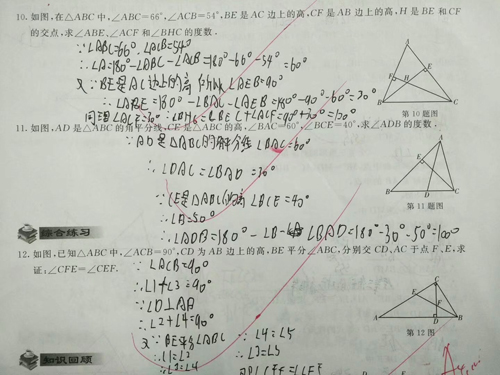 10. 如图,在△ABC中,∠ABC=66°,∠ACB=54°,BE是AC边上的高,CF是AB边上的高,H是BE和CF
的交点,求∠ABE、∠ACF和∠BHC的度数.
∵∠ABC=66° ∠ACB=54°
∴∠A=180°-∠ABC-∠ACB=180°-66°-54°=60°
又∵BE是AC边上的高 ∠AEB=90°
∴∠ABE=180°-∠BAC-∠AEB=180°-90°-60°=30°
同理∠ACF=30° ∴∠BHC=∠BEC+∠ACF=90°+30°=120°
A
F
E
H
B
C
第10题图
11. 如图,AD是△ABC的角平分线,CE是△ABC的高,∠BAC=60°,∠BCE=40°,求∠ADB的度数.
∵AD是△ABC的角平分线 ∠BAC=60°
∴∠DAC=∠BAD=30°
∵CE是△ABC的高 ∠BCE=40°
∴∠B=50°
∴∠ADB=180°-∠B-∠BAD=180°-30°-50°=100°
A
E
B
D
C
第11题图
综合练习
12. 如图,已知△ABC中,∠ACB=90°,CD为AB边上的高,BE平分∠ABC,分别交CD、AC于点F、E,求
证:∠CFE=∠CEF.
∵∠ACB=90°
∴∠1+∠3=90°
∵CD⊥AB
∴∠2+∠4=90°
又∵BE平分∠ABC ∴∠4=∠5
∴∠1=∠2 ∴∠3=∠5
∴∠3=∠4 即∠CFE=∠CEF
C
E
F
A
D
B
第12题图
知识回顾